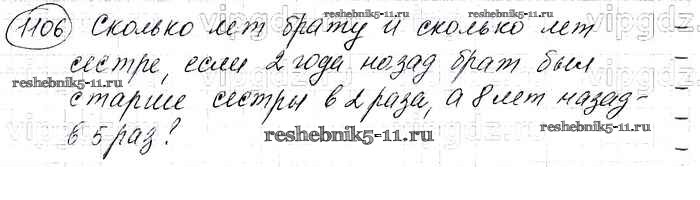 1106 Сколько лет брату и сколько лет
reshebnik5-11.ru
сестре, если 2 года назад брат был
reshebnik5-11.ru
старше сестры в 2 раза, а 8 лет назад -
reshebnik5-11.ru
reshebnik5-11.ru
в 5 раз?